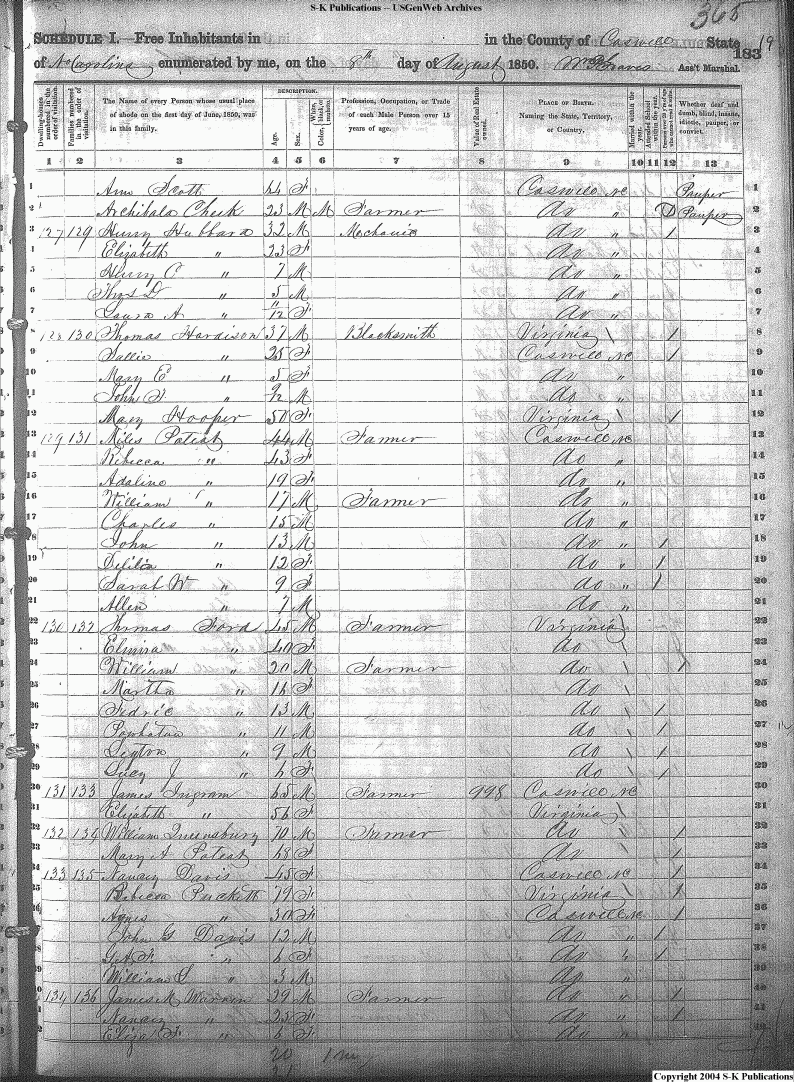 S-K Publications -- USGenWeb Archives
365
SCHEDULE I.—Free Inhabitants in in the County of Caswell State
of No Carolina enumerated by me, on the 8th day of August 1850. Ass't Marshal.
183 19
Dwelling-houses numbered in the order of visitation.
Families numbered in the order of visitation.
The Name of every Person whose usual place of abode on the first day of June, 1850, was in this family.
DESCRIPTION.
Age.
Sex.
White, black, or mulatto. Color
Profession, Occupation, or Trade of each Male Person over 15 years of age.
Value of Real Estate owned.
PLACE OF BIRTH. Naming the State, Territory, or Country.
Married within the year.
Attended School within the year.
Whether deaf and dumb, blind, insane, idiotic, pauper, or convict.
1 2 3 4 5 6 7 8 9 10 11 12 13
1 Ann Scott 64 F Caswell NC Pauper 1
2 Archibald Cheek 23 M M Farmer do " Pauper 2
3 127 129 Henry Hubbard 32 M Mechanic do " / 3
4 Elizabeth " 23 F do " 4
5 Henry C " 7 M do " 5
6 Thos D " 5 M do " 6
7 Laura A " 11/12 F do " 7
8 128 130 Thomas Hardison 37 M Blacksmith Virginia \ / 8
9 Sallie " 25 F Caswell NC / 9
10 Mary E " 5 F do " 10
11 John F " 9/12 M do " 11
12 Mary Hooper 50 F Virginia \ / 12
13 129 131 Miles Poteat 44 M Farmer Caswell NC 13
14 Rebecca " 43 F do " 14
15 Adaline " 19 F do " 15
16 William " 17 M Farmer do " 16
17 Charles " 15 M do " 17
18 John " 13 M do " / 18
19 Delilia " 12 F do " / 19
20 Sarah W " 9 F do " / 20
21 Allen " 7 M do " 21
22 130 132 Thomas Ford 45 M Farmer Virginia \ 22
23 Elmira " 40 F do \ 23
24 William " 20 M Farmer do \ / 24
25 Martha " 16 F do \ 25
26 Fedric " 13 M do \ / 26
27 Powhatan " 11 M do \ / 27
28 Sexton " 9 M do \ / 28
29 Lucy J " 6 F do \ / 29
30 131 133 James Ingram 65 M Farmer 998 Caswell NC 30
31 Elizabeth " 56 F Virginia \ 31
32 132 134 William Queensbury 70 M Farmer do \ / 32
33 Mary A Poteat 68 F do \ / 33
34 133 135 Nancy Davis 45 F Caswell NC / 34
35 Rebecca Puckett 79 F Virginia \ / 35
36 Agnes " 30 F Caswell NC / 36
37 John G Davis 12 M do " / 37
38 F " 6 F do " / 38
39 William S " 3 M do " 39
40 134 136 James M Warren 29 M Farmer do " / 40
41 Nancy " 25 F do " / 41
42 Eliza F " 6 F do " 42
20 1 m
Copyright 2004 S-K Publications